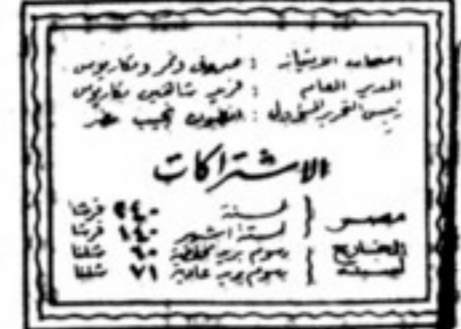 اصحاب الامتياز : صروف ونمر ومكاريوس
المدير العام : فريد شاهين مكاريوس
رئيس التحرير المسؤول : انطون نجيب مطر
الاشتراكات
مصر { لسنة ٢٤٠ قرشا
لستة اشهر ١٤٠ قرشا
الخارج لسنة { برسوم بريد مخفضة ٦٠ شلنا
برسوم بريد عادية ٧١ شلنا